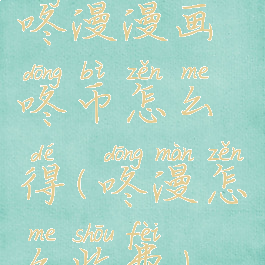 咚漫漫画
dōng bì zěn me
咚币怎么
dé dōng màn zěn
得(咚漫怎
me shōu fèi
么收费)